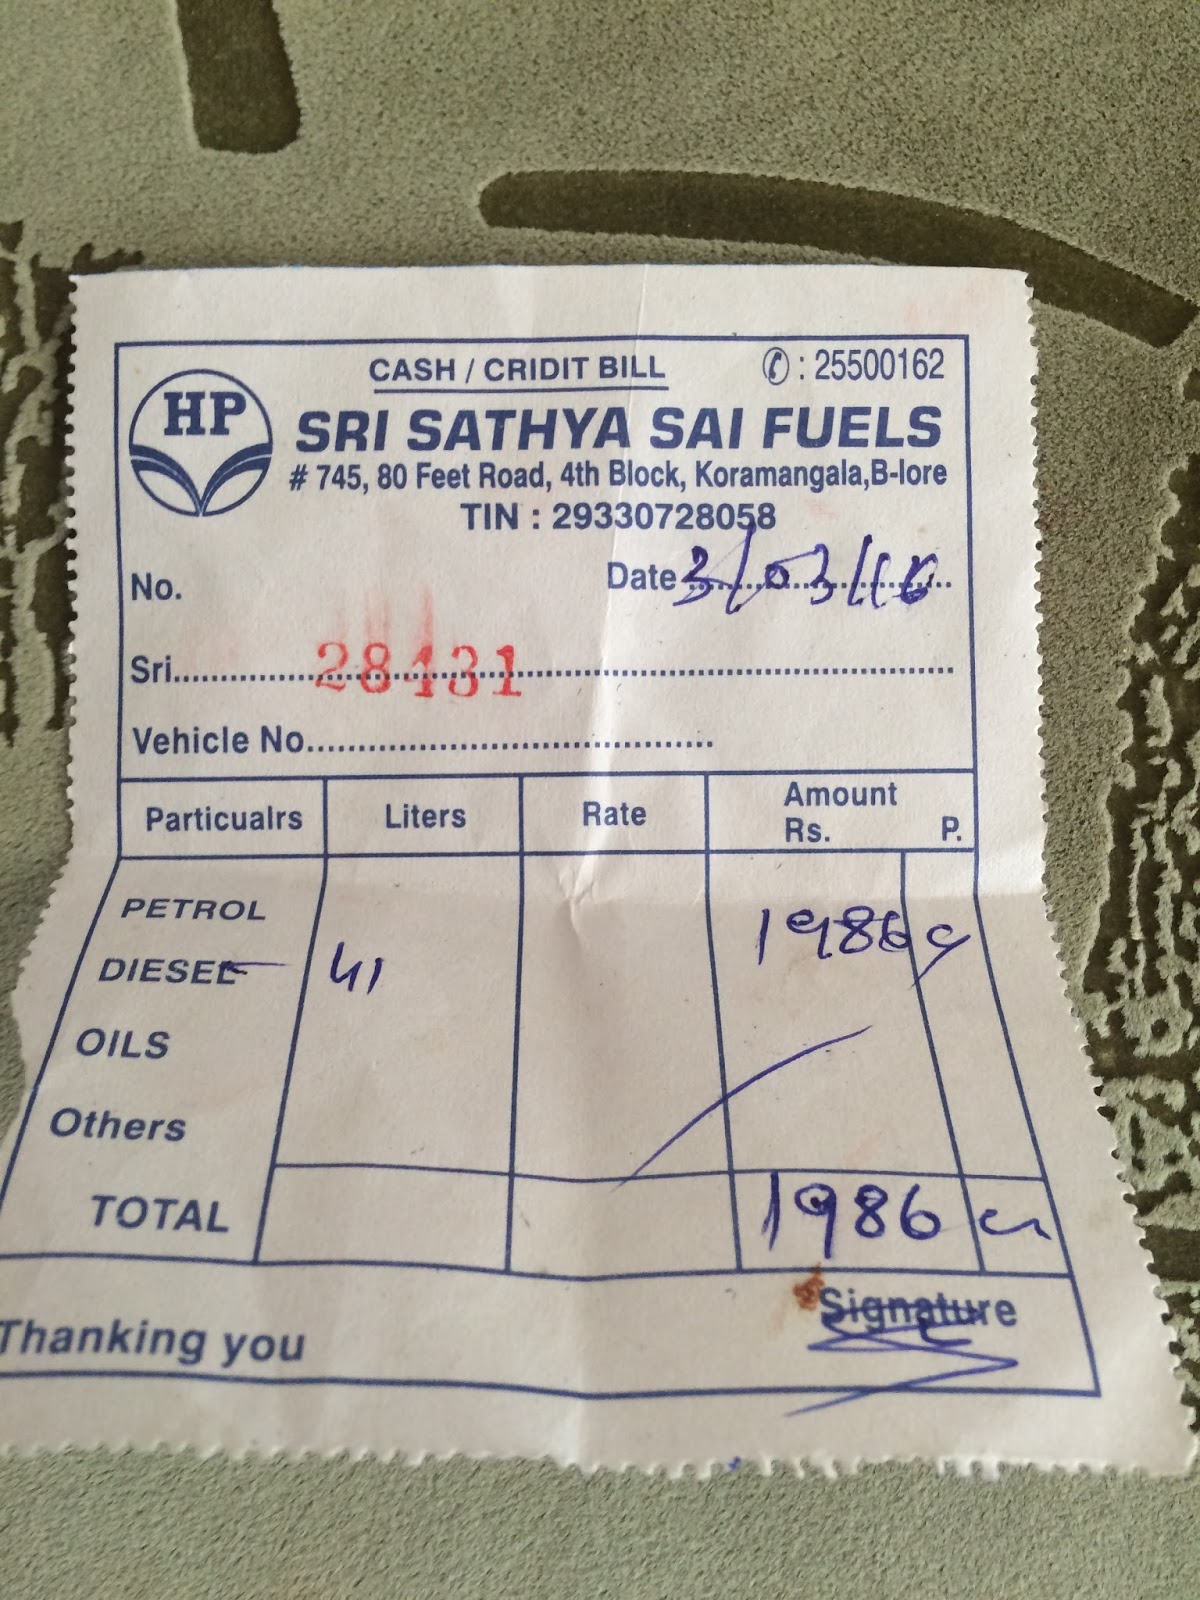 CASH / CRIDIT BILL ✆ : 25500162
HP
SRI SATHYA SAI FUELS
# 745, 80 Feet Road, 4th Block, Koramangala,B-lore
TIN : 29330728058
No. Date 3/03/16
Sri 28431
Vehicle No.
Particualrs Liters Rate Amount
Rs. P.
PETROL 1986
DIESEL 41
OILS
Others
TOTAL 1986
Signature
Thanking you